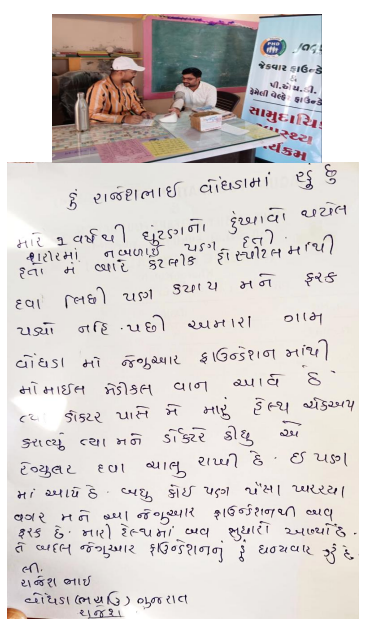 PHD
જેકવાર ફાઉન્ડે
&
પી.એચ.ડી.
ફેમેલી વેલ્ફેર ફાઉન્ડે
સામુદાયિક
સ્વાસ્થ્ય
ર્યક્રમ
હું રાજેશભાઈ વોંઘડામાં રહું છું
મારે ૧ વર્ષથી ઘુંટણનો દુઃખાવો થયેલ
શરીરમાં નબળાઈ પણ હતી
હતો મે બારે કેટલીક હોસ્પીટલમાંથી
દવા લિધી પણ કયાય મને ફરક
પડયો નહિ. પછી અમારા ગામ
વોંઘડા માં જેગુઆર ફાઉન્ડેશન માંથી
મોબાઈલ મેડીકલ વાન આવે છે
ત્યા ડોકટર પાસે મે મારું હેલ્થ ચેકઅપ
કરાવ્યું ત્યા મને ડોકટરે કીધુ એ
રેગ્યુલર દવા ચાલુ રાખી છે. ઈ પણ
માં આપે છે. બધુ કોઈ પણ પૈસા ખરચ્યા
વગર મને આ જેગુઆર ફાઉન્ડેશનથી બવ
ફરક છે. મારી હેલ્થમાં બવ સુધારો આવ્યો છે.
તે બદલ જેગુઆર ફાઉન્ડેશનનું હું ધન્યવાદ કરું છું
લી.
રાજેશ ભાઈ
વોંઘડા (ભચાઉ) ગુજરાત
રાજેશ